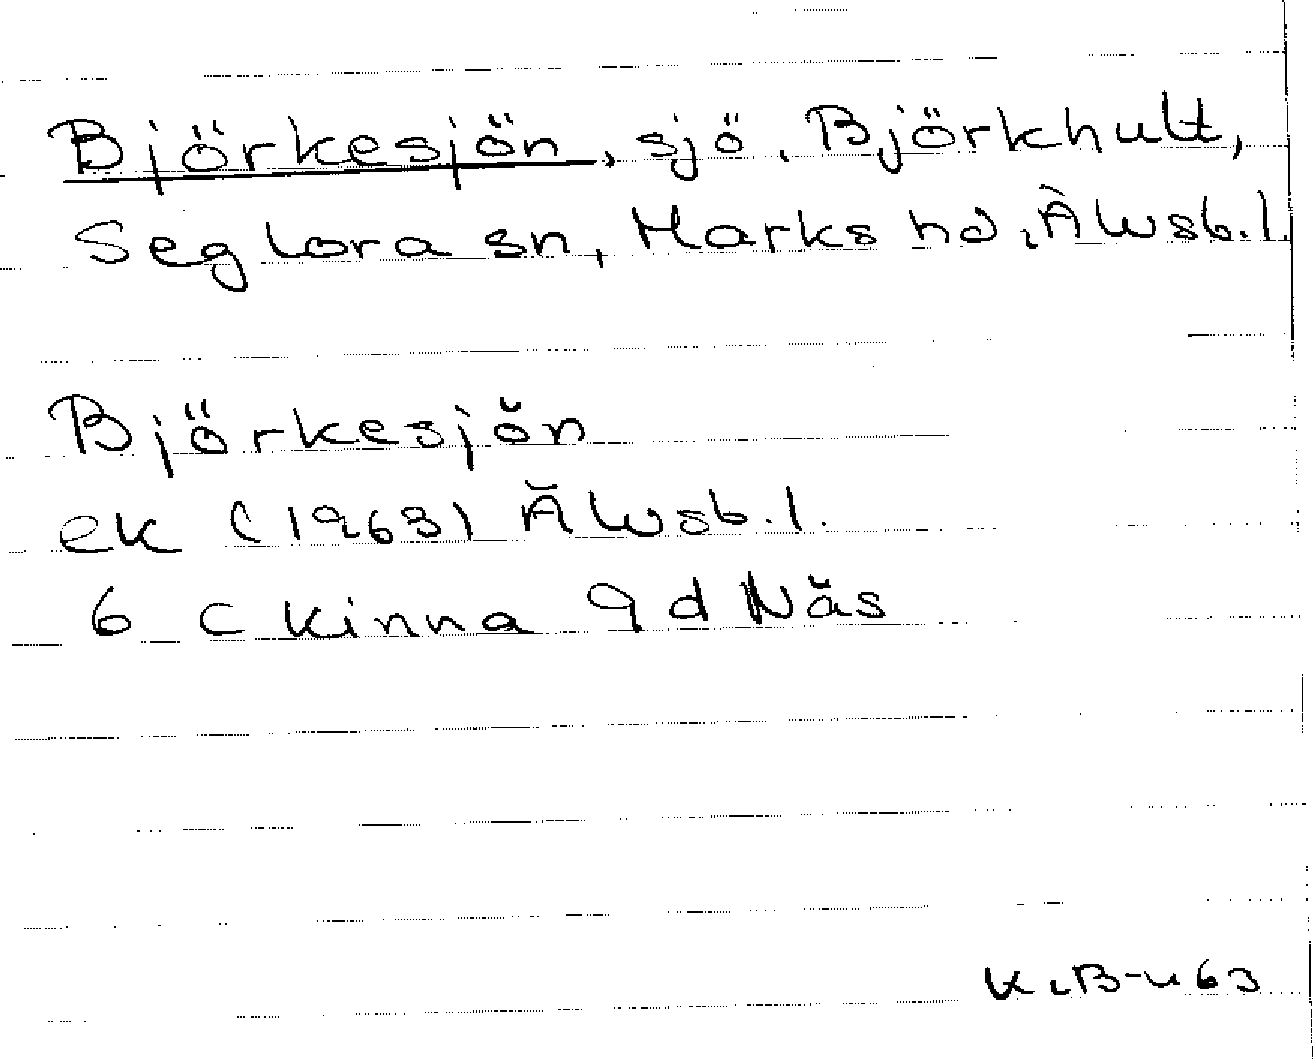 Björkesjön, sjö, Björkhult,
Seglora sn, Marks hd, Älvsb.l.
Björkesjön
ek (1963) Älvsb.l.
6 C Kinna 9 d Näs